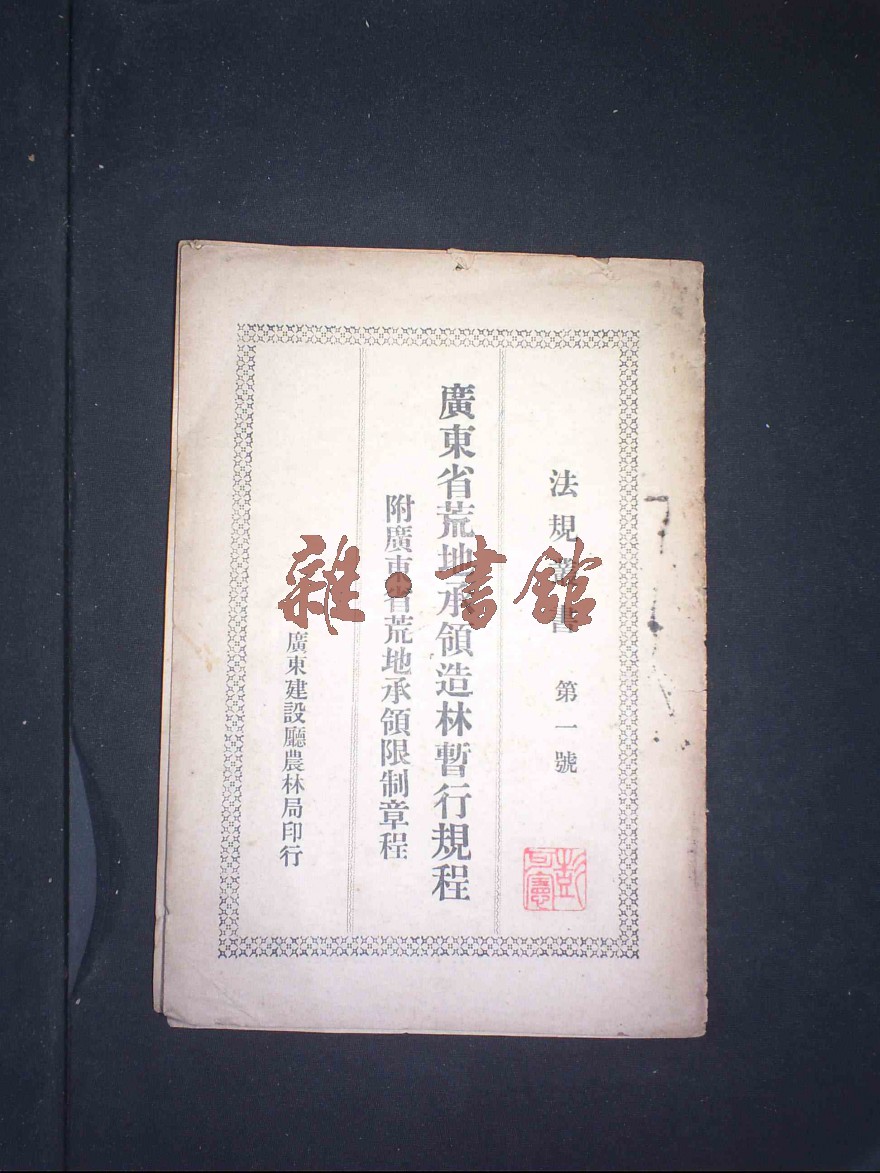 法規叢書 第一號
廣東省荒地承領造林暫行規程
附廣東省荒地承領限制章程
廣東建設廳農林局印行
雜·書館